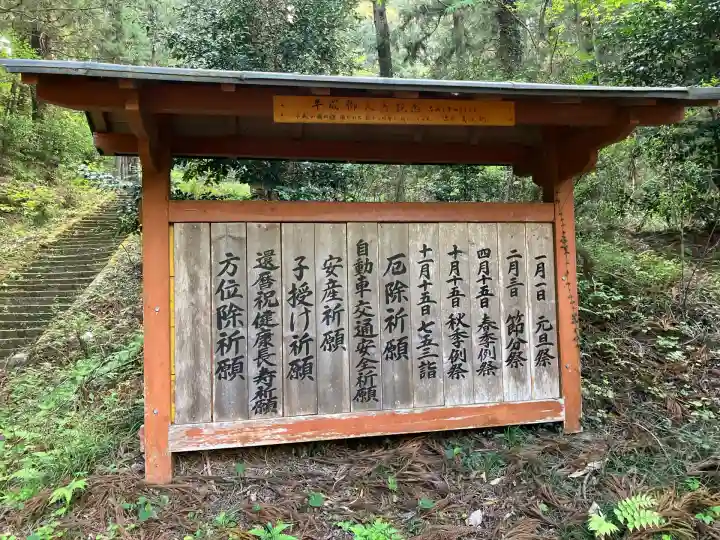 一月一日 元旦祭
二月三日 節分祭
四月十五日 春季例祭
十月十五日 秋季例祭
十一月十五日 七五三詣
厄除祈願
自動車交通安全祈願
安産祈願
子授け祈願
還暦祝健康長寿祈願
方位除祈願